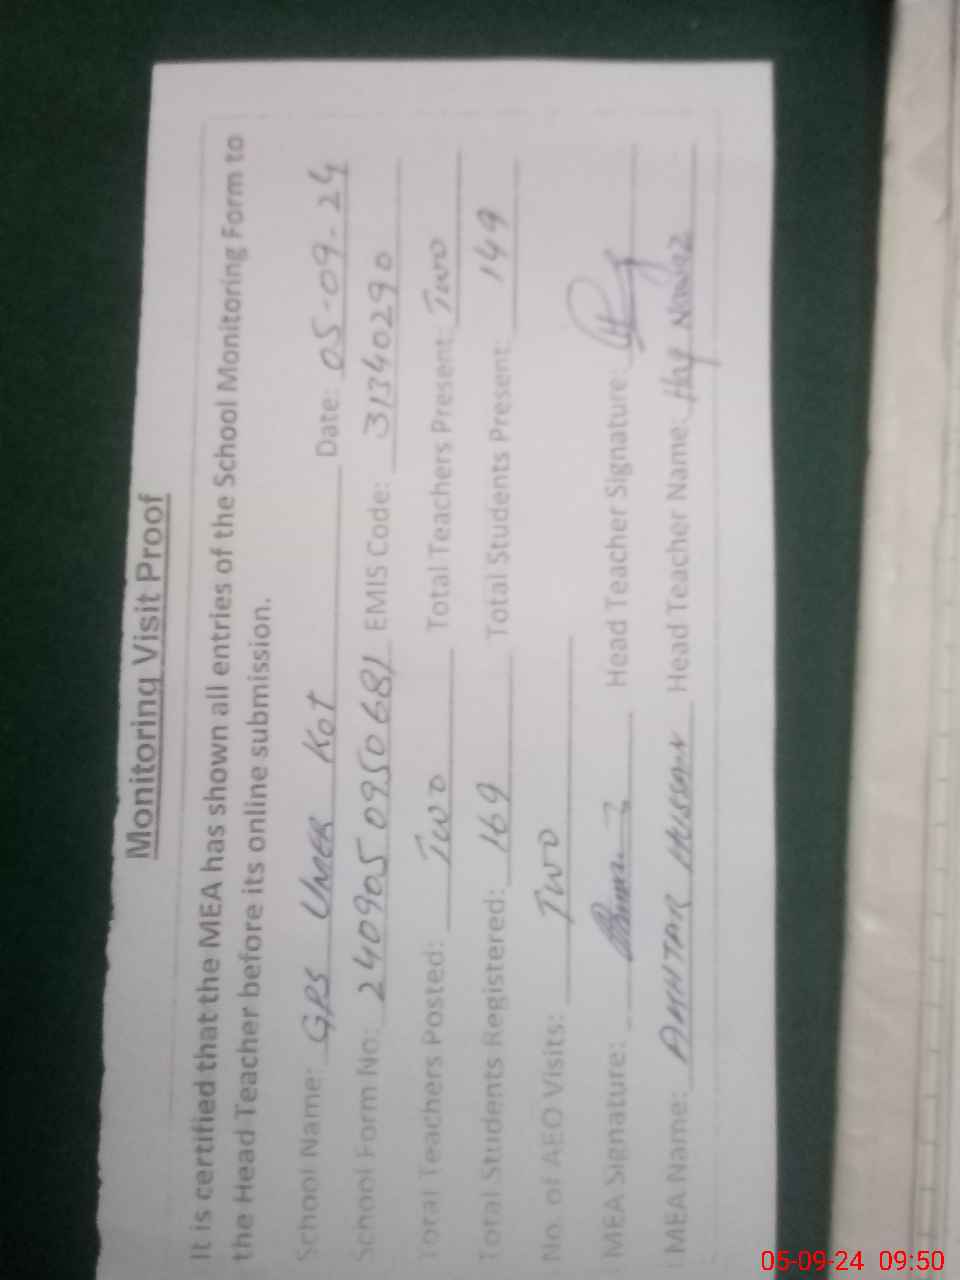 Monitoring Visit Proof
It is certified that the MEA has shown all entries of the School Monitoring Form to
the Head Teacher before its online submission.
School Name: GPS UMER KOT Date: 05-09-24
School Form No: 2409050950681 EMIS Code: 31340290
Total Teachers Posted: Two Total Teachers Present: Two
Total Students Registered: 169 Total Students Present: 149
No. of AEO Visits: Two
MEA Signature: Head Teacher Signature:
MEA Name: HUSSAIN Head Teacher Name: Nawaz
05-09-24 09:50